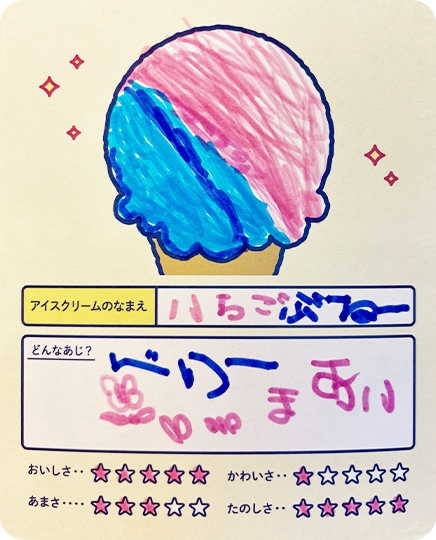 アイスクリームのなまえ いちごぶるー
どんなあじ?
べりー
おいしさ‥ ★★★★★ かわいさ‥ ★☆☆☆☆
あまさ‥‥ ★★★☆☆ たのしさ‥ ★★★★★